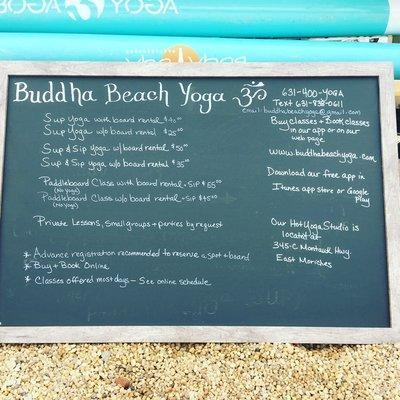 BUDDHA YOGA
YOGA
Buddha Beach Yoga ॐ
Sup Yoga with board rental $40.00
Sup Yoga w/o board rental $25.00
Sup & Sip Yoga w/ board rental $50.00
Sup & Sip Yoga w/o board rental $35.00
Paddleboard Class with board rental = SIP $65.00
(No Yoga)
Paddleboard Class w/o board rental = SIP $45.00
(No Yoga)
Private Lessons, Small groups + parties by request
* Advance registration recommended to reserve a spot + board
* Buy + Book Online
* Classes offered most days — See online schedule
631-400-YOGA
Text 631-938-0611
email: buddhabeachyoga@gmail.com
Buy Classes + Book Classes
in our app or on our
web page
www.buddhabeachyoga.com
Download our free app in
Itunes app store or Google
Play
Our Hot Yoga Studio is
located at
345-C Montauk Hwy.
East Moriches